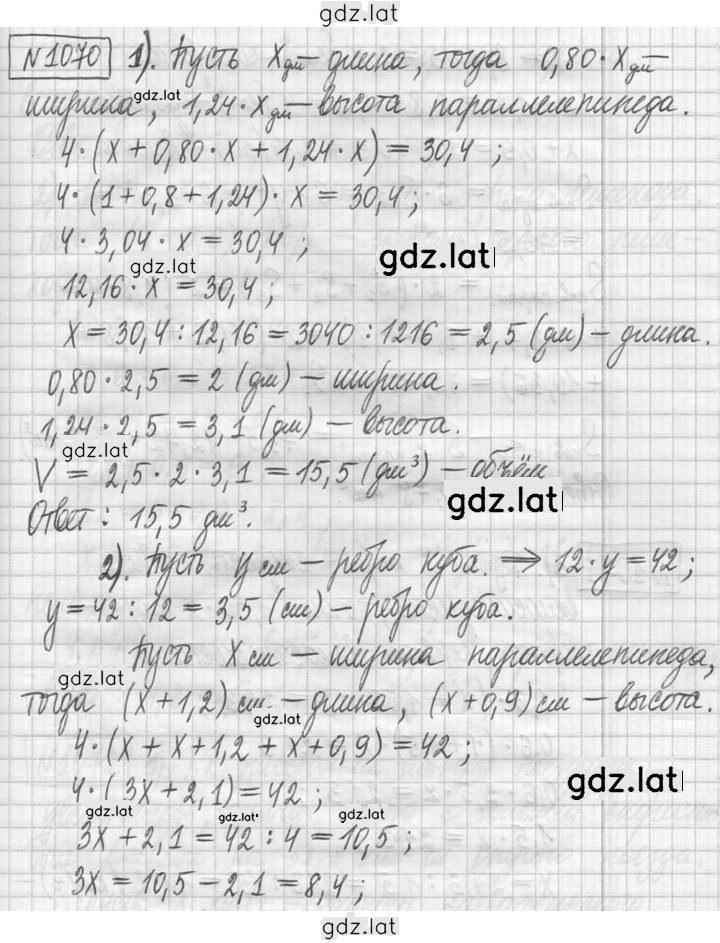 gdz.lat
№1070 1). Пусть x дм – длина, тогда 0,80·x дм –
ширина, 1,24·x дм – высота параллелепипеда.
gdz.lat
4·(x+0,80·x+1,24·x)=30,4;
4·(1+0,8+1,24)·x=30,4;
4·3,04·x=30,4;
gdz.lat
gdz.lat
12,16·x=30,4;
x=30,4:12,16=3040:1216=2,5 (дм) – длина.
0,80·2,5=2 (дм) – ширина.
1,24·2,5=3,1 (дм) – высота.
gdz.lat
V=2,5·2·3,1=15,5 (дм³) – объём
gdz.lat
Ответ: 15,5 дм³.
2). Пусть y см – ребро куба. ⇒ 12·y=42;
y=42:12=3,5 (см) – ребро куба.
Пусть x см – ширина параллелепипеда,
gdz.lat
тогда (x+1,2) см – длина, (x+0,9) см – высота.
gdz.lat
4·(x+x+1,2+x+0,9)=42;
4·(3x+2,1)=42;
gdz.lat
gdz.lat
gdz.lat
gdz.lat
3x+2,1=42:4=10,5;
3x=10,5-2,1=8,4;
gdz.lat